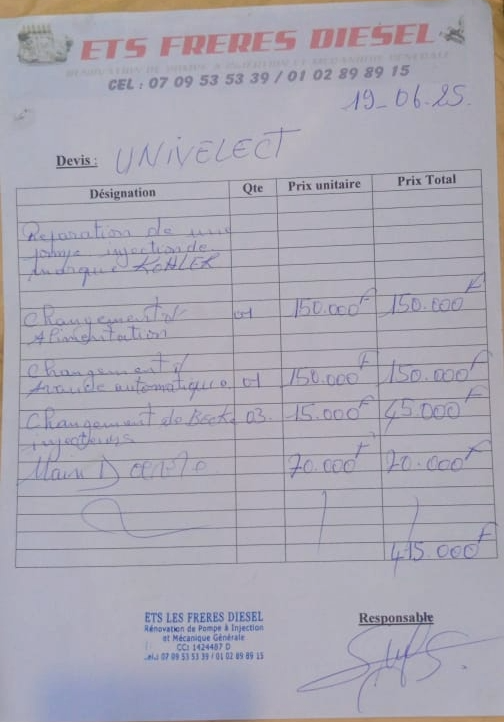 ETS FRERES DIESEL
RENOVATION DE POMPE A INJECTION ET MECANIQUE GENERALE
CEL : 07 09 53 53 39 / 01 02 89 89 15
19_06.25.
Devis : UNIVELECT
Désignation Qte Prix unitaire Prix Total
Reparation de une
pompe injection de
marque KOHLER
Changement d'
Alimentation 01 150.000F 150.000F
Changement d'
Avance automatique 01 150.000F 150.000F
Changement de Becke 03. 15.000F 45.000F
injecteurs
Main D' œuvre 70.000F 70.000F
415.000F
ETS LES FRERES DIESEL
Rénovation de Pompe à Injection
et Mécanique Générale
CC: 1424487 D
Cel.: 07 09 53 53 39 / 01 02 89 89 15
Responsable